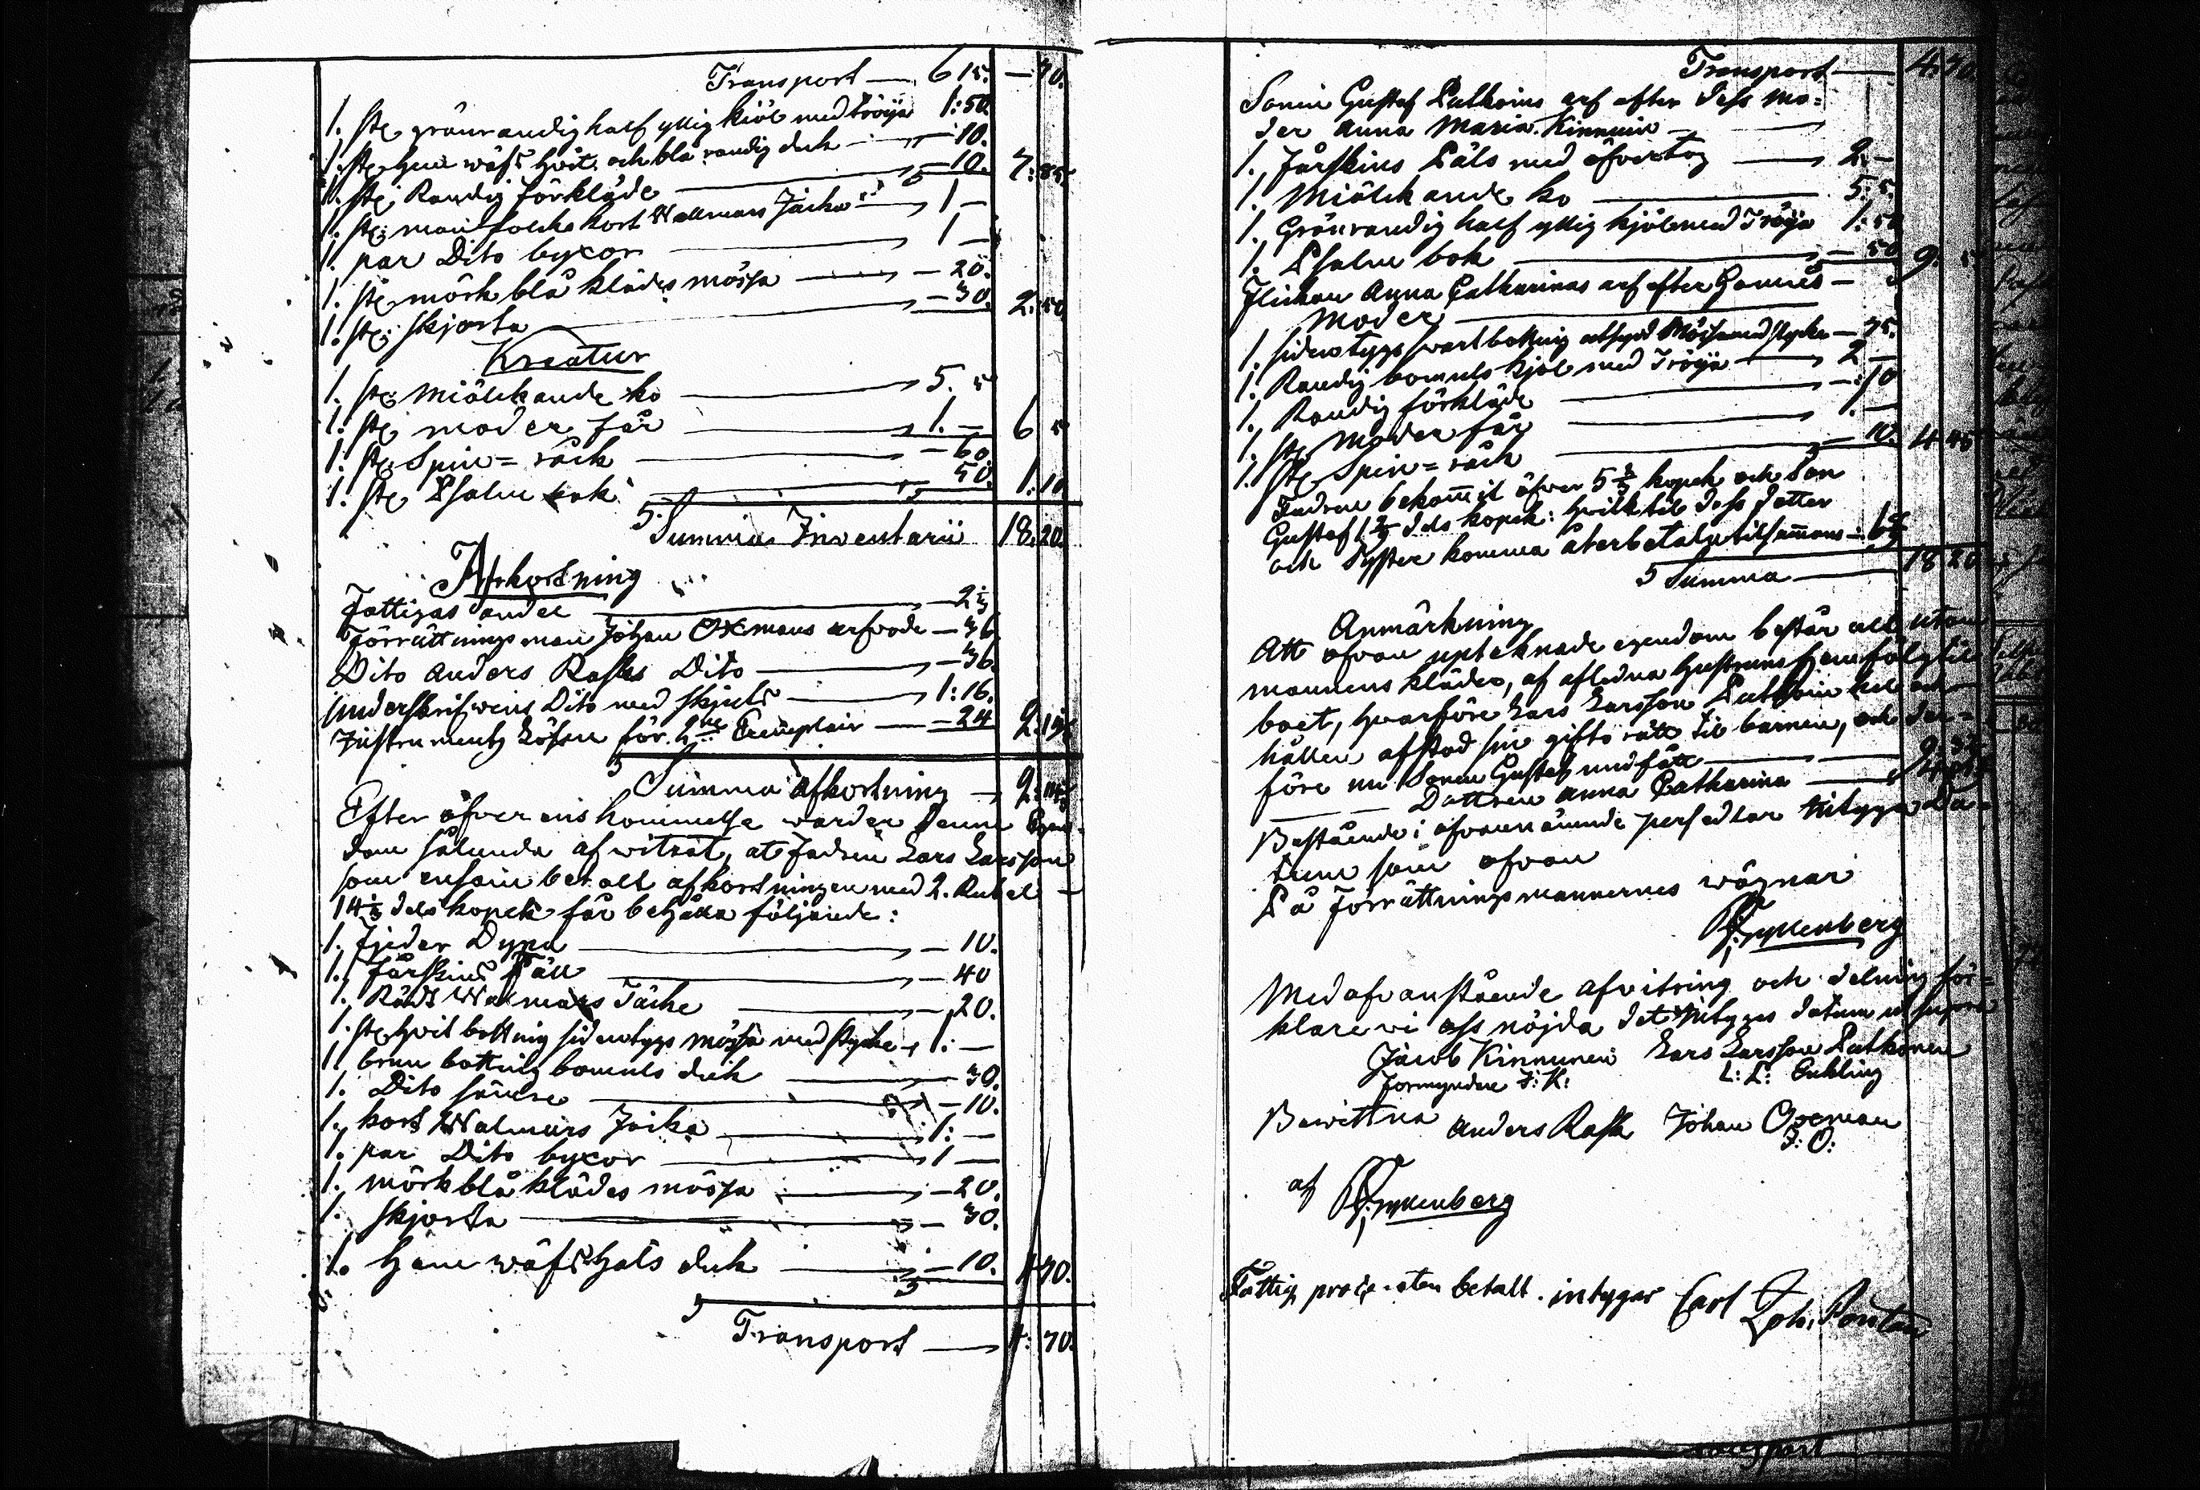 Transport — 6 15. — 70.
1. st: grönrandig half yllig kiöl med tröija 1:50.
1. st: hem wäft hvit och blå randig duk — 10.
1. st: Randig Förkläde — 10. 7:85
1. st: mans folcks kort Wallmars Jacka 1 —
1. par Dito byxor 1 —
1. st: mörk blå klädes mössa — 20.
1. st: skjorta — 30. 2:50
Kreatur
1. st: miölckande ko 5. 5
1. st: moder får 1. — 6 5
1. st: Spin=råck — 60.
1. st: Psalm bok 50. 1:10
Summa Inventarii 18.20.
Afkortning
Fattigas andel — 2
Förrättnings man Johan Oxmans arfvode — 36
Dito Anders Rasks Dito — 36.
Underskrifvens Dito med skjuts 1:16.
Instrumentz Lösen för 2ne Exemplair — 24 2:
Summa afkortning 2:
Efter öfverenskommelse warder denne Egen-
dom sålunda afwitrat, at Fadren Lars Larsson
som ensam betalt afkortningen med 2. Rubel
14 dels kopek får behålla följande:
1. Fjeder Dyna — 10.
1. Fårskins Fäll — 40
1. Rödt Walmars Täcke — 20.
1. st: hvit bottnig sidentygs mössa med stycke 1: —
1. brun bottnig bomuls duk 30.
1. Dito sämre — 10.
1. kort Walmars Jacka 1: —
1. par Dito byxor 1 —
1. mörkblå klädes mössa — 20.
1. skjorta — 30.
1. hem wäft Hals duk — 10. 4 70.
Transport 4: 70.
Transport 4.70
Sonen Gustaf Putkoins arf efter dess mo=
der Anna Maria Kinnuin
1. Fårskins Päls med öfvertog 2. —
1. Miölckande ko 5:5.
1. Grönrandig half yllig kjöl med Tröija 1:50
1. Psalm bok — 50 9.
Flickan Anna Catharinas arf efter Hennes
Moder
1. sidentygs svartbottnig utsyd Mössa med stycke — 75.
1. Randig bomuls kjol med Tröija 2 —
1. Randig förkläde — 10
1. st: Moder får 1. —
1. st: Spin=råck 4 45
Fadren bekommit öfver 5 kopek och Son
Gustaf dels kopek: hvilk til dess Dotter
och Syster komma återbetala tilsammans
Summa 18 20
Anmärkning
Att ofvan uptecknade egendom består all utom
mannens kläder, af afledna Hustruns hemfölg til
boet, hvarföre Lars Larsson Putkoin hel och
hållen afstod sin gifto rätt til barnen, och der=
före nu Sonen Gustaf undfått
Dottren Anna Catharina
Bestående i ofvannämnde persedlar intygga da-
tum som ofvan
På Förrättningsmannernes wägnar
Med ofvanstående afvitring och delning för=
klare vi oss nöjda det intygas datum ut supra
Jacob Kinnunen Lars Larsson Putkonen
Formyndare J: K: L: L: Enkling
Bewittna Anders Rask Johan Oxman
J: O:
af
Fattig procenten betalt. intygar Carl Joh. Pontan